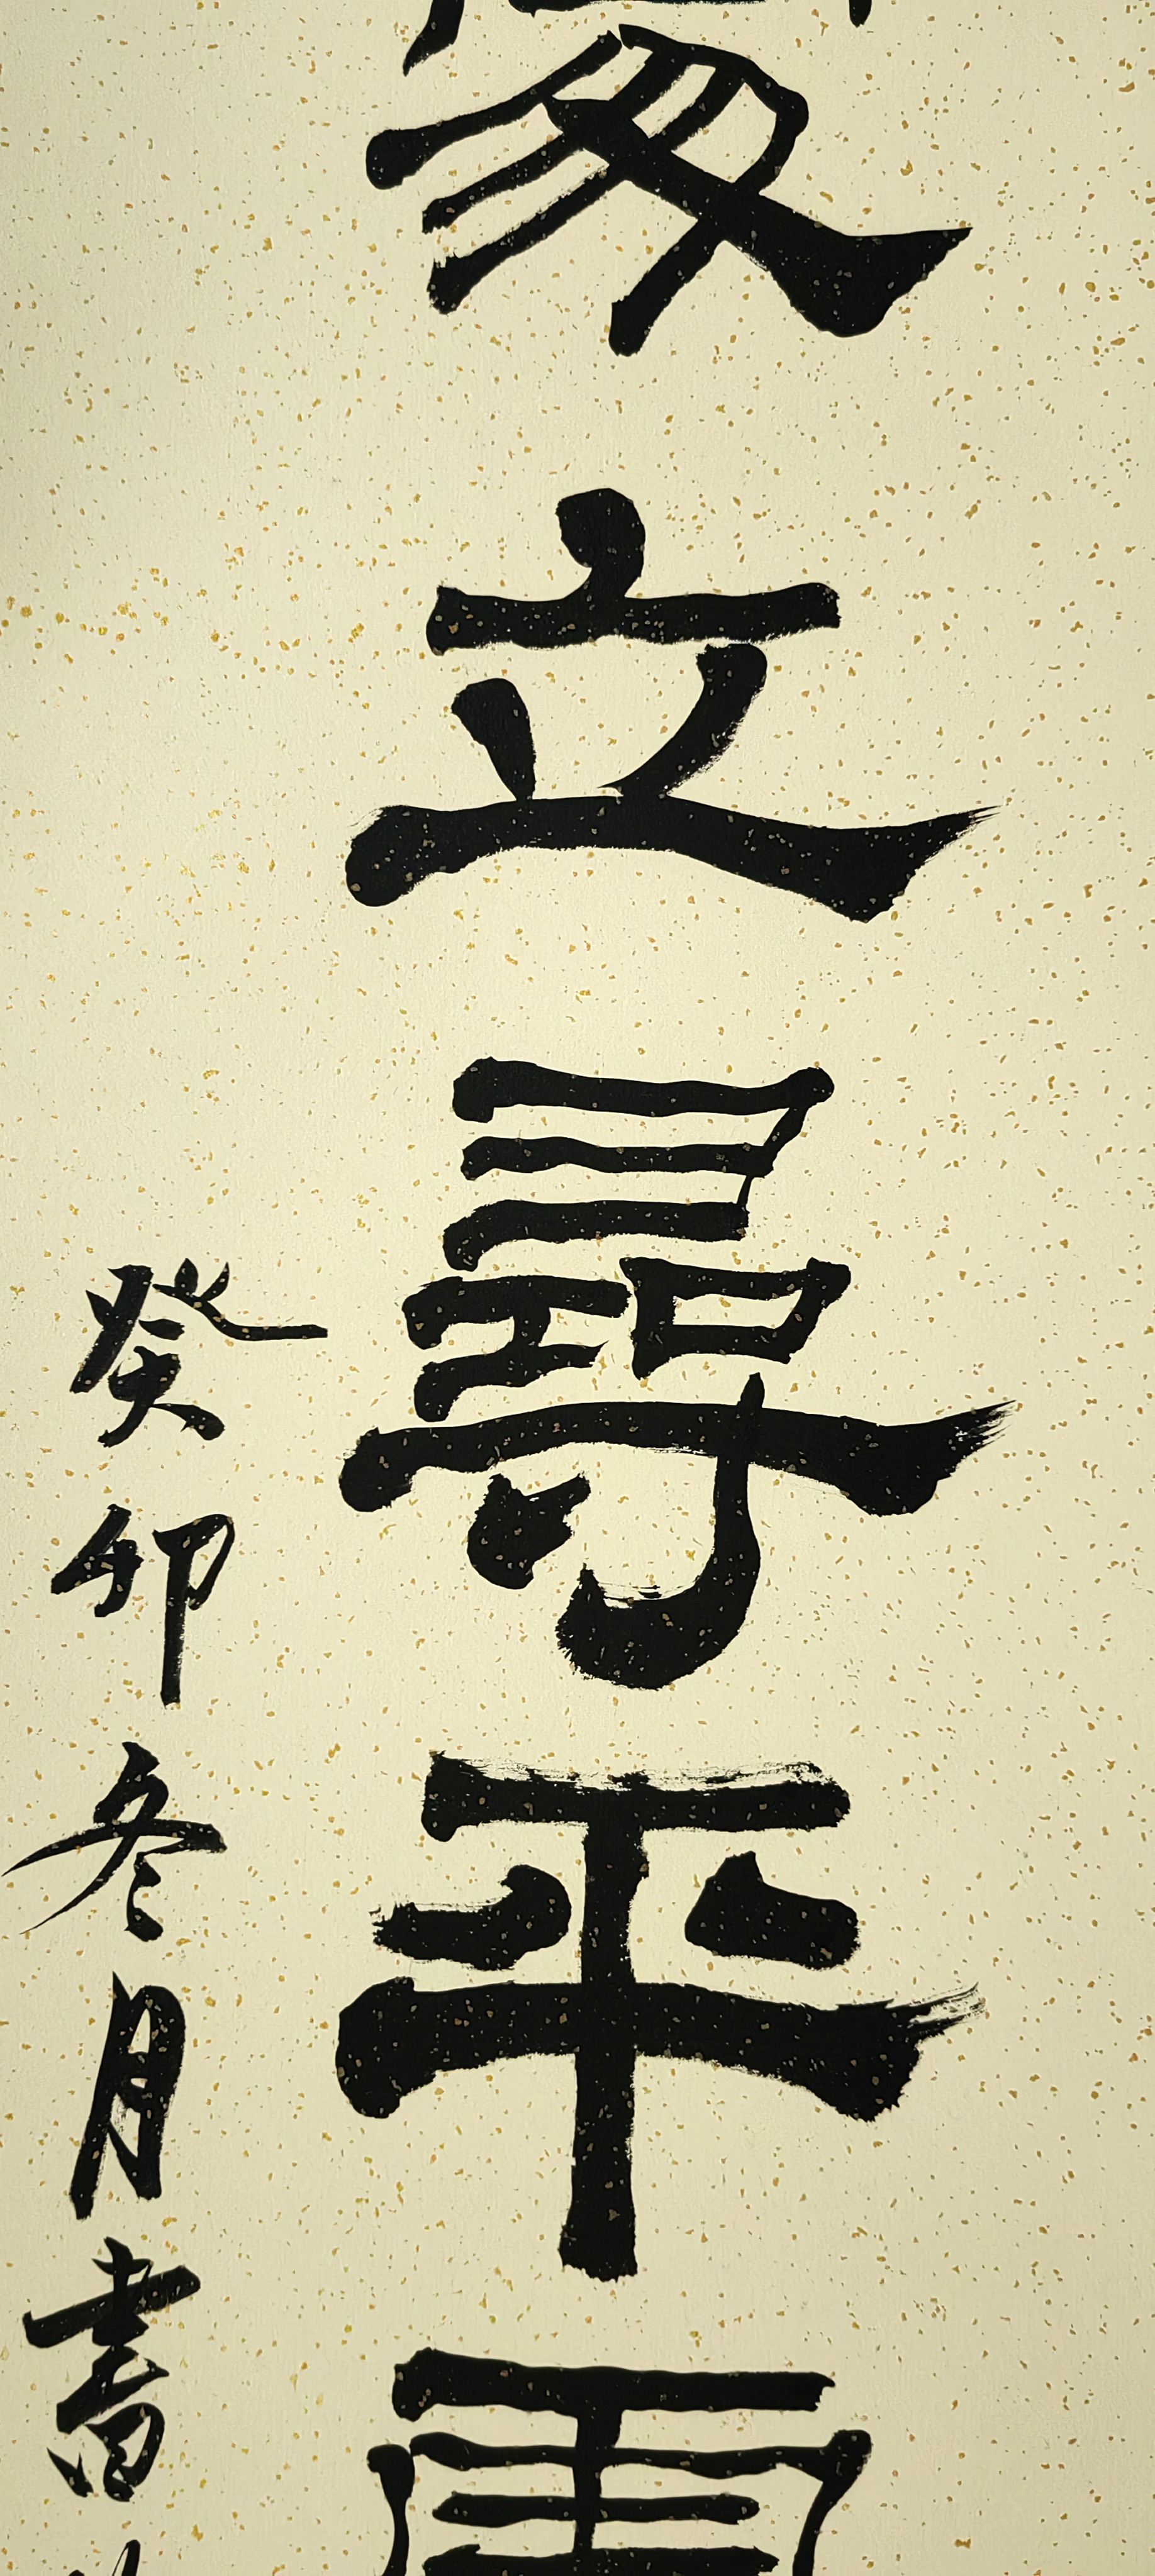 立尋平
癸卯冬月書